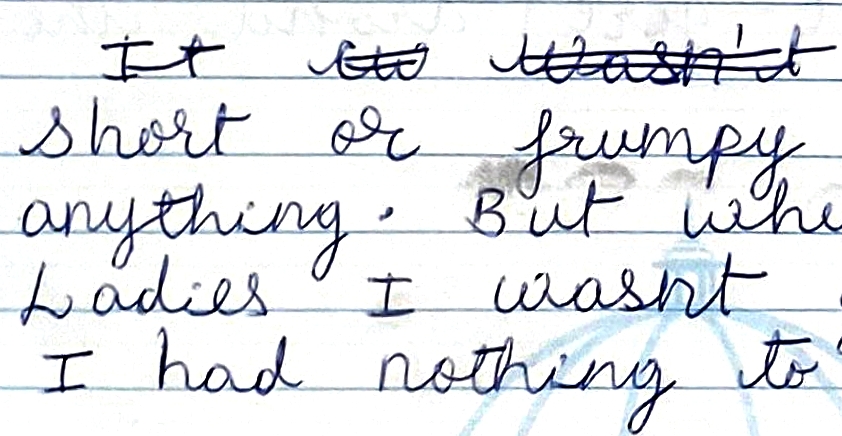 It wasn't
short or frumpy
anything. But whe
Ladies I wasnt
I had nothing to